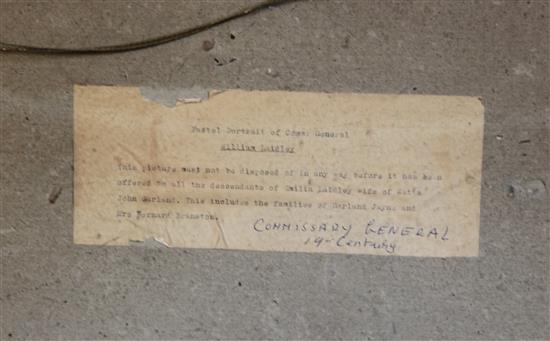 Pastel Portrait of Comm: General
William Laidley
This picture must not be disposed of in any way before it has been
offered to all the descendants of Emilia Laidley wife of
John Garland. This includes the families of Garland Jayne and
Mrs Bernard Branston.
COMMISSARY GENERAL
19th Century